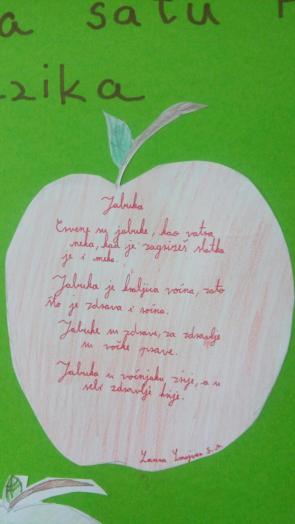 a satu
zika
Jabuka
Crvene su jabuke, kao vatra
neka, kad je zagrizeš slatka
je i meka.
Jabuka je kraljica voća, zato
što je zdrava i voćna.
Jabuke su zdrave, za zdravlje
su voćke prave.
Jabuka u voćnjaku zrije, a u
sebi zdravlje krije.